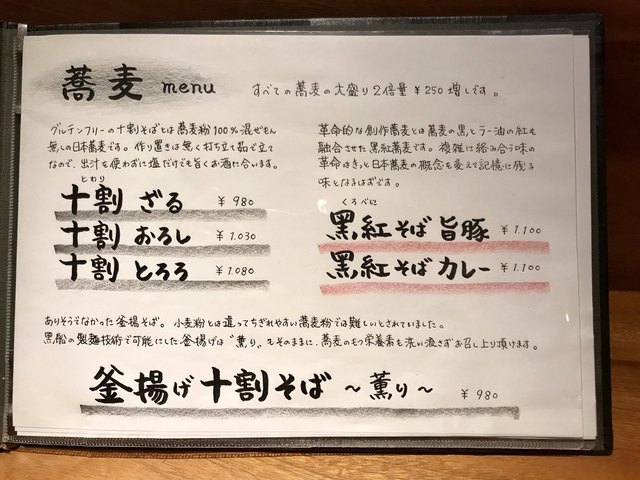 蕎麦 menu
すべての蕎麦の大盛り2倍量¥250増しです。
グルテンフリーの十割そばとは蕎麦粉100%混ぜもん
無しの日本蕎麦です。作り置きは無く打ち立て茹で立て
なので、出汁を使わずに塩だけでも旨くお酒に合います。
とわり
十割 ざる ¥980
十割 おろし ¥1.030
十割 とろろ ¥1.080
革命的な創作蕎麦とは蕎麦の黒とラー油の紅も
融合させた黒紅蕎麦です。複雑に絡み合う味の
革命はきっと日本蕎麦の概念を変えて記憶に残る
味となるはずです。
くろべに
黒紅そば 旨豚 ¥1.100
黒紅そば カレー ¥1.100
ありそうでなかった釜揚そば。小麦粉とは違ってちぎれやすい蕎麦粉では難しいとされていました。
黒船の製麺技術で可能にした釜揚げは“薫り”をそのままに、蕎麦のもつ栄養素も洗い流さずお召し上り頂けます。
釜揚げ十割そば 〜薫り〜 ¥980